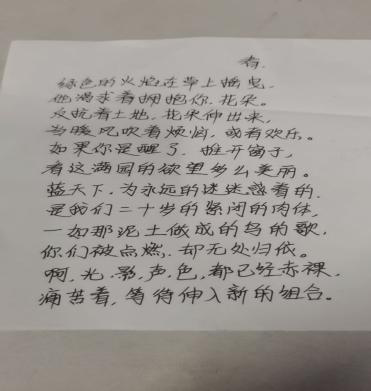 春.
绿色的火焰在草上摇曳,
他渴求着拥抱你,花朵。
反抗着土地,花朵伸出来,
当暖风吹着烦恼,或着欢乐。
如果你是醒了,推开窗子,
看这满园的欲望多么美丽。
蓝天下,为永远的迷迷惑着的,
是我们二十岁的紧闭的肉体,
一如那泥土做成的鸟的歌,
你们被点燃,却无处归依。
啊,光,影,声,色,都已经赤裸,
痛苦着,等待伸入新的组合。